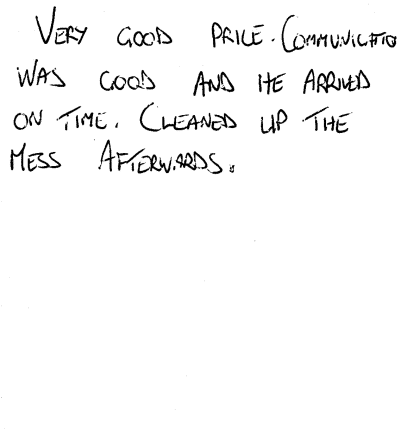 VERY GOOD PRICE. COMMUNICATIO
WAS GOOD AND HE ARRIVED
ON TIME. CLEANED UP THE
MESS AFTERWARDS.